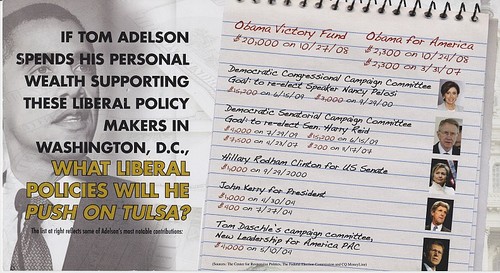 IF TOM ADELSON
SPENDS HIS PERSONAL
WEALTH SUPPORTING
THESE LIBERAL POLICY
MAKERS IN
WASHINGTON, D.C.,
WHAT LIBERAL
POLICIES WILL HE
PUSH ON TULSA?
The list at right reflects some of Adelson's most notable contributions:
Obama Victory Fund
$20,000 on 10/27/08
Obama for America
$2,300 on 10/24/08
$2,300 on 3/31/07
Democratic Congressional Campaign Committee
Goal: to re-elect Speaker Nancy Pelosi
$15,200 on 6/15/09 $3,000 on 9/29/00
Democratic Senatorial Campaign Committee
Goal: to re-elect Sen. Harry Reid
on 7/29/09 $15,200 on 6/15/09
$7,500 on 9/17/07
Hillary Rodham Clinton for US Senate
$1,000 on 9/29/2000
John Kerry for President
$1,000 on 4/30/04
$400 on 7/27/04
Tom Daschle's campaign committee,
New Leadership for America PAC
on 5/10/04
(Sources: The Center for Responsive Politics, The Federal Election Commission and CQ MoneyLine)